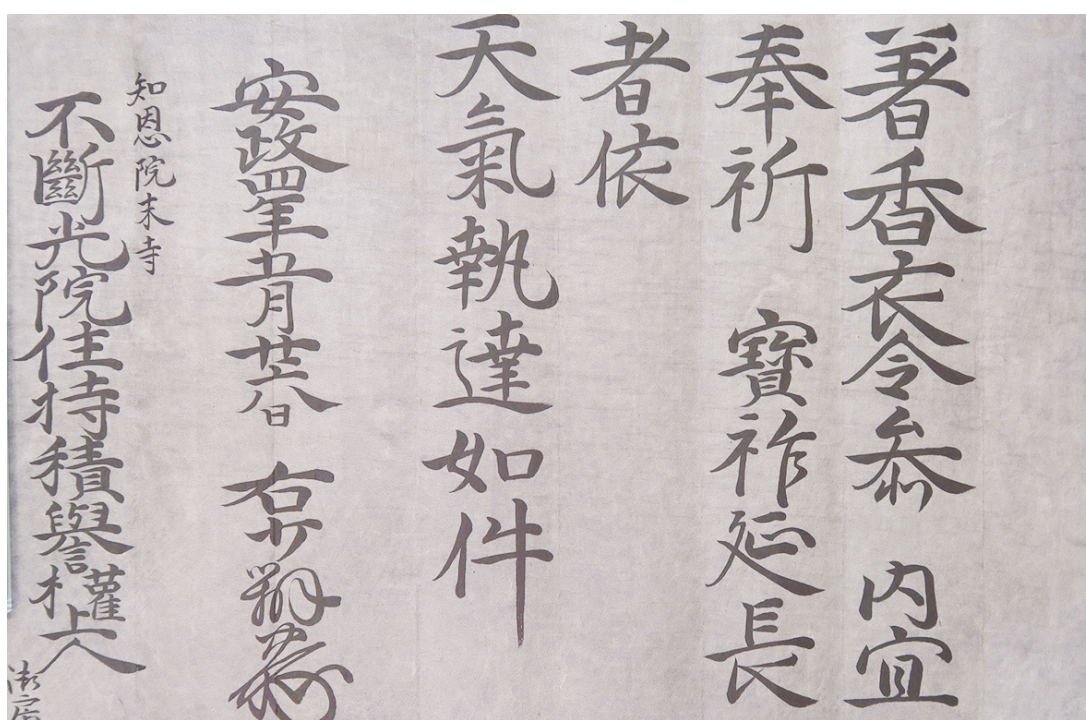 著香衣令參　内宜
奉祈　寶祚延長
者依
天氣執達如件
安政四年五月廿六日　右少辨
知恩院末寺
不斷光院住持積譽權上人
御房